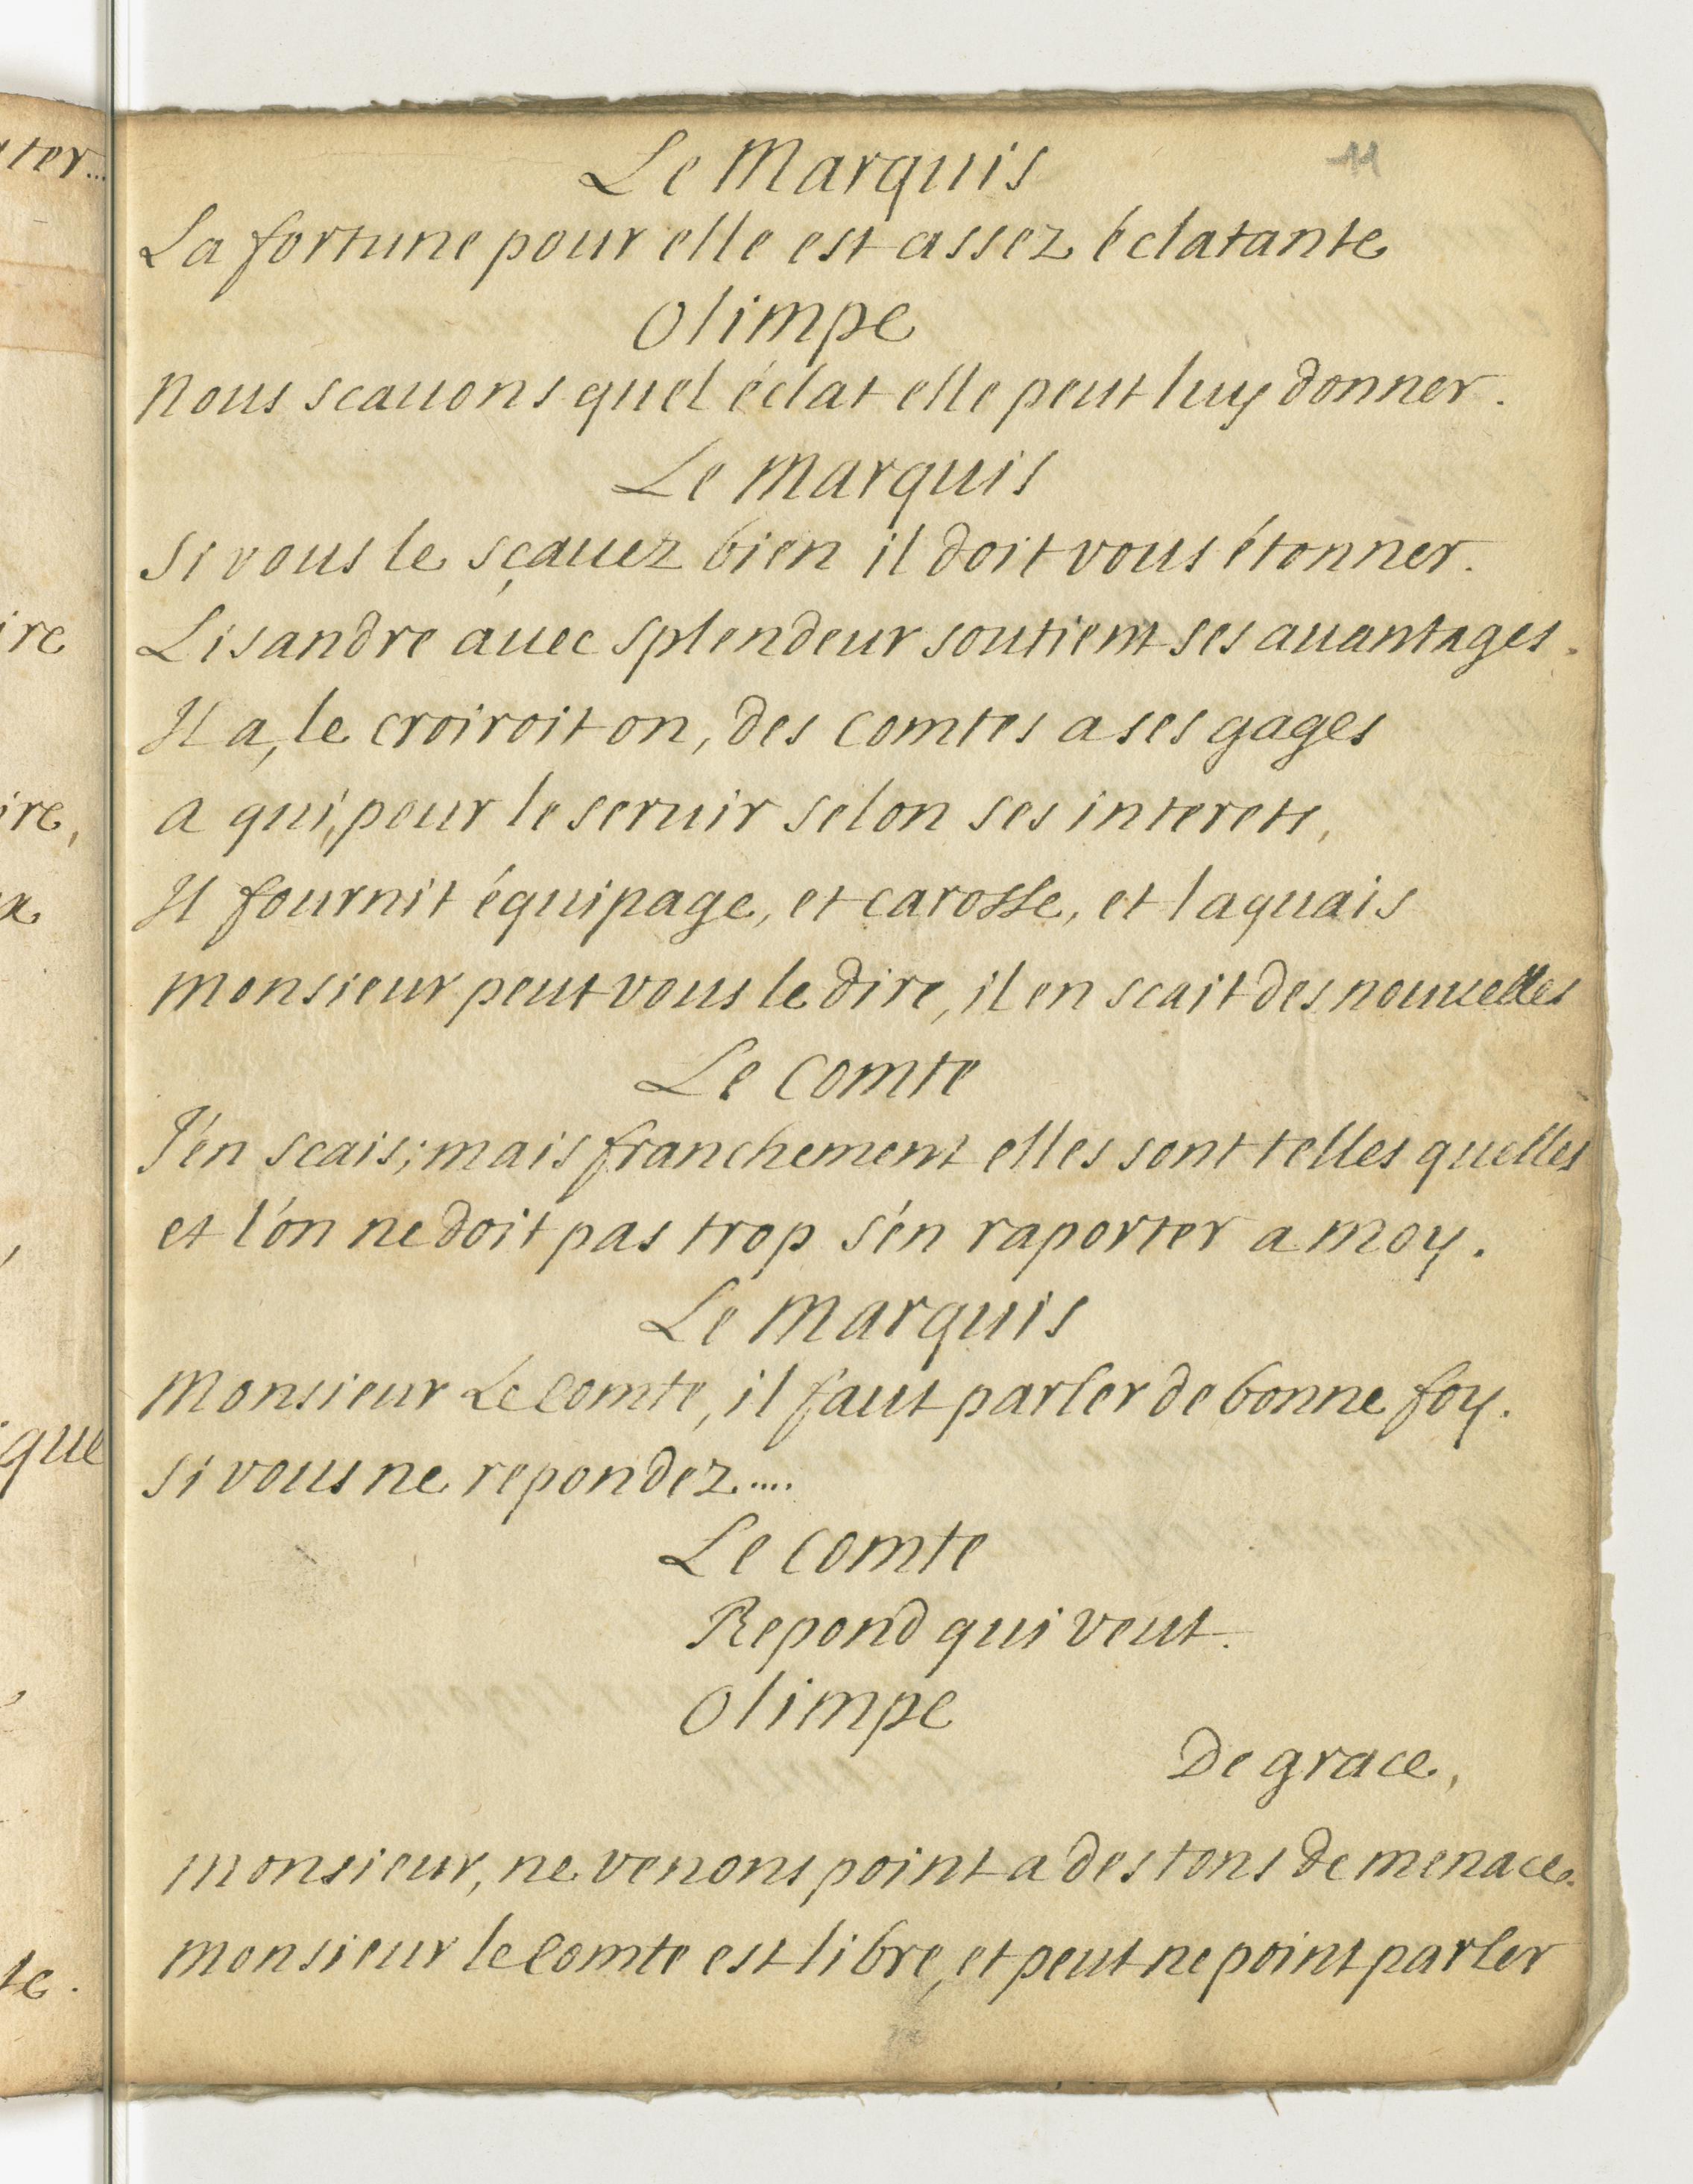 11
Le Marquis
La fortune pour elle est assez éclatante
Olimpe
Nous scauons quel éclat elle peut luy donner.
Le Marquis
Si vous le sçauez bien il doit vous étonner.
Lisandre auec splendeur soutient ses auantages.
Il a, le croiroit on, des comtes a ses gages
a qui, pour le seruir selon ses interets,
Il fournit équipage, et carosse, et laquais
Monsieur peut vous le dire, il en scait des nouuelles
Le Comte
J'en scais; mais franchement elles sont telles quelles
et l'on ne doit pas trop s'en raporter a moy.
Le Marquis
Monsieur Le Comte, il faut parler de bonne foy.
si vous ne repondez.....
Le Comte
Repond qui veut.
Olimpe
De grace,
monsieur, ne venons point a des tons de menace.
monsieur le Comte est libre, et peut ne point parler